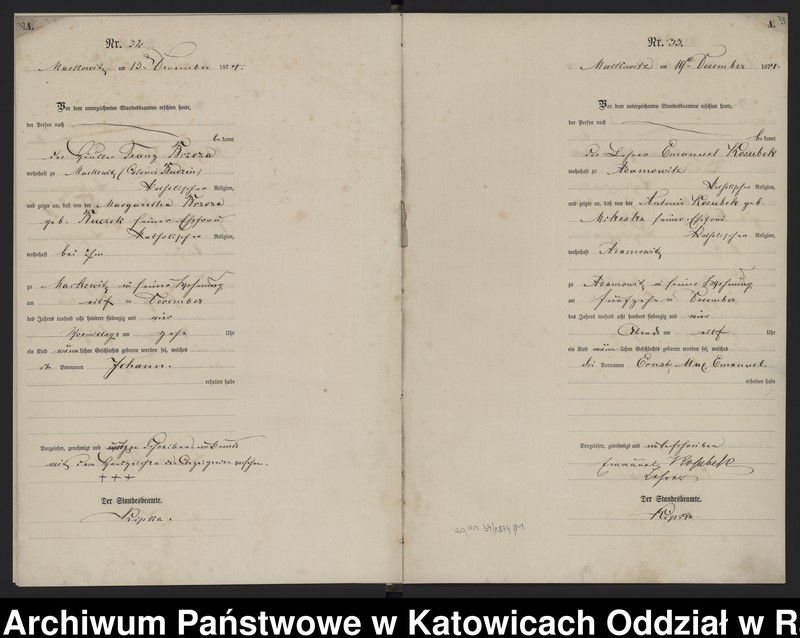 A.
Nr. 32.
Markowitz am 13. December 1874.
Vor dem unterzeichneten Standesbeamten erschien heute,
der Person nach
bekannt
der Franz Brzoza
wohnhaft zu Markowitz (Colonie Budzin)
katholischer Religion,
und zeigte an, daß von der Margaretha Brzoza
geb. Kuczek seiner Ehefrau
katholischer Religion,
wohnhaft bei ihm
zu Markowitz in seiner Wohnung
am eilf ten December
des Jahres tausend acht hundert siebenzig und vier
Vormittags um zehn Uhr
ein Kind männlichen Geschlechts geboren worden sei, welches
den Vornamen Johann.
erhalten habe
Vorgelesen, genehmigt und wegen Schreibensunkunde
mit dem Handzeichen des Anzeigenden versehen.
+ + +
Der Standesbeamte.
Kipka.
A.
33
Nr. 33.
Markowitz am 19ten December 1874.
Vor dem unterzeichneten Standesbeamten erschien heute,
der Person nach
bekannt
der Lehrer Emanuel Kosubek
wohnhaft zu Adamowitz
katholischer Religion,
und zeigte an, daß von der Antonie Kosubek geb.
Mikeska seiner Ehefrau
katholischer Religion,
wohnhaft Adamowitz
zu Adamowitz in seiner Wohnung
am fünfzehn ten December
des Jahres tausend acht hundert siebenzig und vier
Abends um eilf Uhr
ein Kind männlichen Geschlechts geboren worden sei, welches
die Vornamen Ernst, Max, Emanuel.
erhalten habe
Vorgelesen, genehmigt und unterschrieben
Emanuel Kosubek
Lehrer
Der Standesbeamte.
Kipka.
Archiwum Państwowe w Katowicach Oddział w R